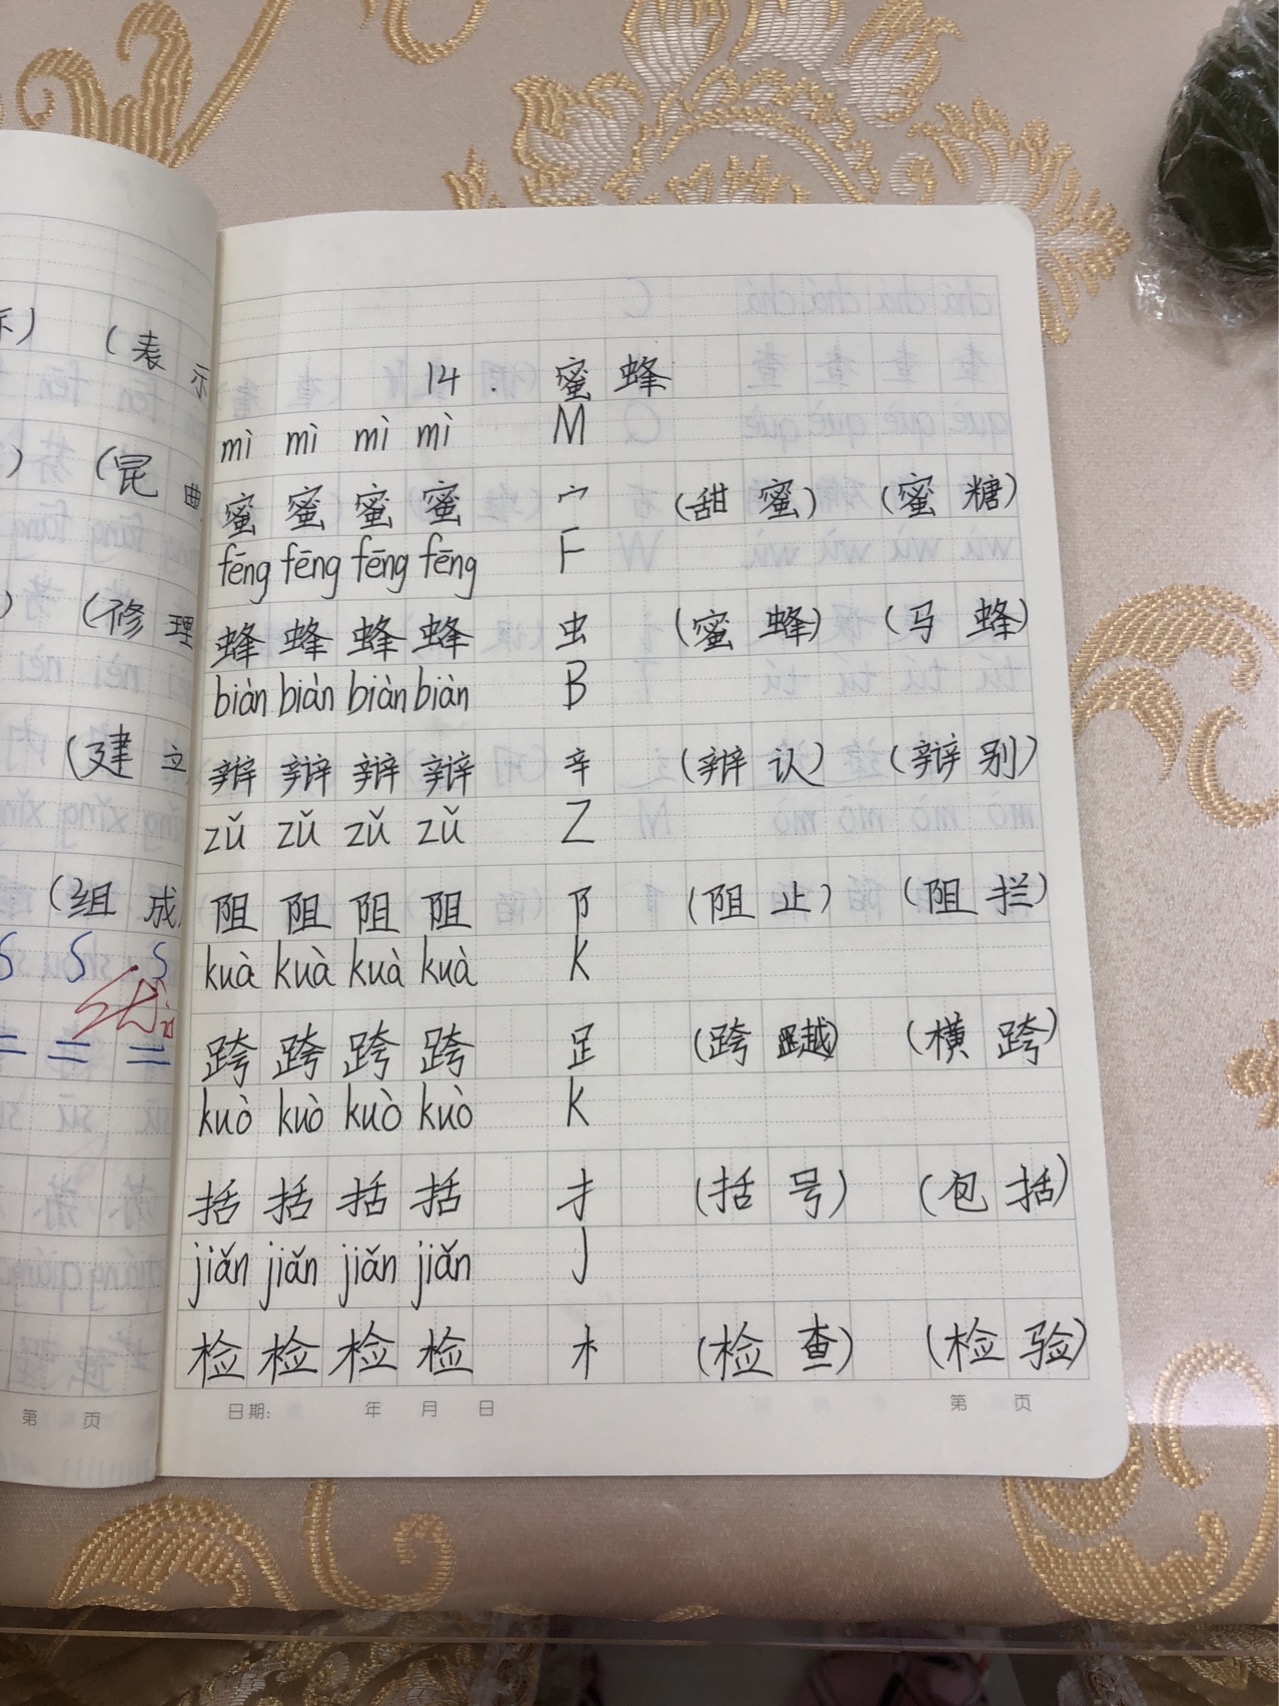 (表 示
(昆 曲
(修 理
(建 立
(组 成
第 页
14. 蜜 蜂
mì mì mì mì M
蜜 蜜 蜜 蜜 宀 (甜 蜜) (蜜 糖)
fēng fēng fēng fēng F
蜂 蜂 蜂 蜂 虫 (蜜 蜂) (马 蜂)
biàn biàn biàn biàn B
辨 辨 辨 辨 辛 (辨 认) (辨 别)
zǔ zǔ zǔ zǔ Z
阻 阻 阻 阻 阝 (阻 止) (阻 拦)
kuà kuà kuà kuà K
跨 跨 跨 跨 𧾷 (跨 越) (横 跨)
kuò kuò kuò kuò K
括 括 括 括 扌 (括 号) (包 括)
jiǎn jiǎn jiǎn jiǎn J
检 检 检 检 木 (检 查) (检 验)
日期: 年 月 日 第 页